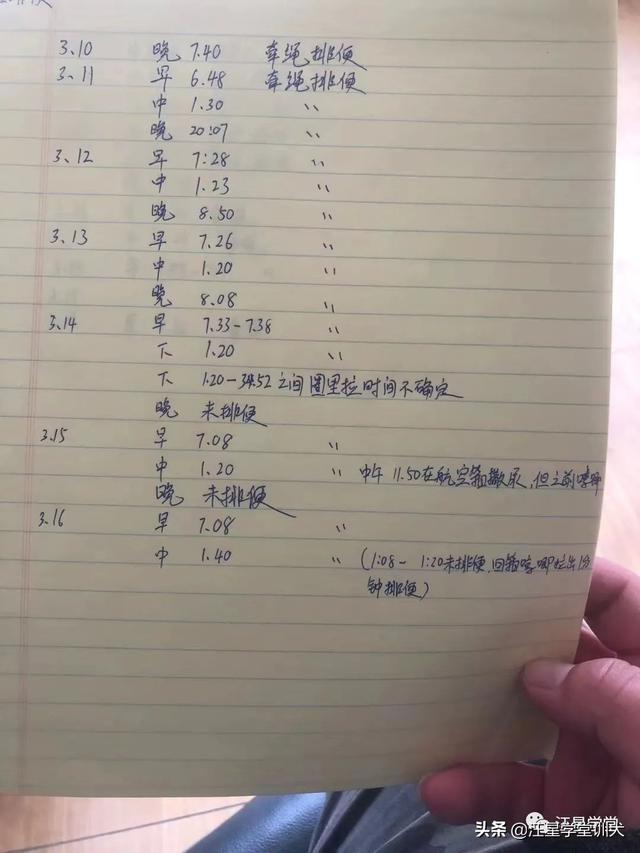 3.10 晚 7.40 牵绳排便
3.11 早 6.48 牵绳排便
中 1.30 〃
晚 20:07 〃
3.12 早 7:28 〃
中 1.23 〃
晚 8.50 〃
3.13 早 7.26 〃
中 1.20 〃
晚 8.08 〃
3.14 早 7.33-7.38 〃
下 1.20 〃
下 1.20- 之间圈里拉时间不确定
晚 未排便
3.15 早 7.08 〃
中 1.20 〃 中午 11.50在航空箱撒尿,但之前哼唧
晚 未排便
3.16 早 7.08 〃
中 1.40 〃 (1:08- 1:20未排便,回箱哼唧拉出1分
钟排便)
汪星学堂
头条 @汪星学堂训犬